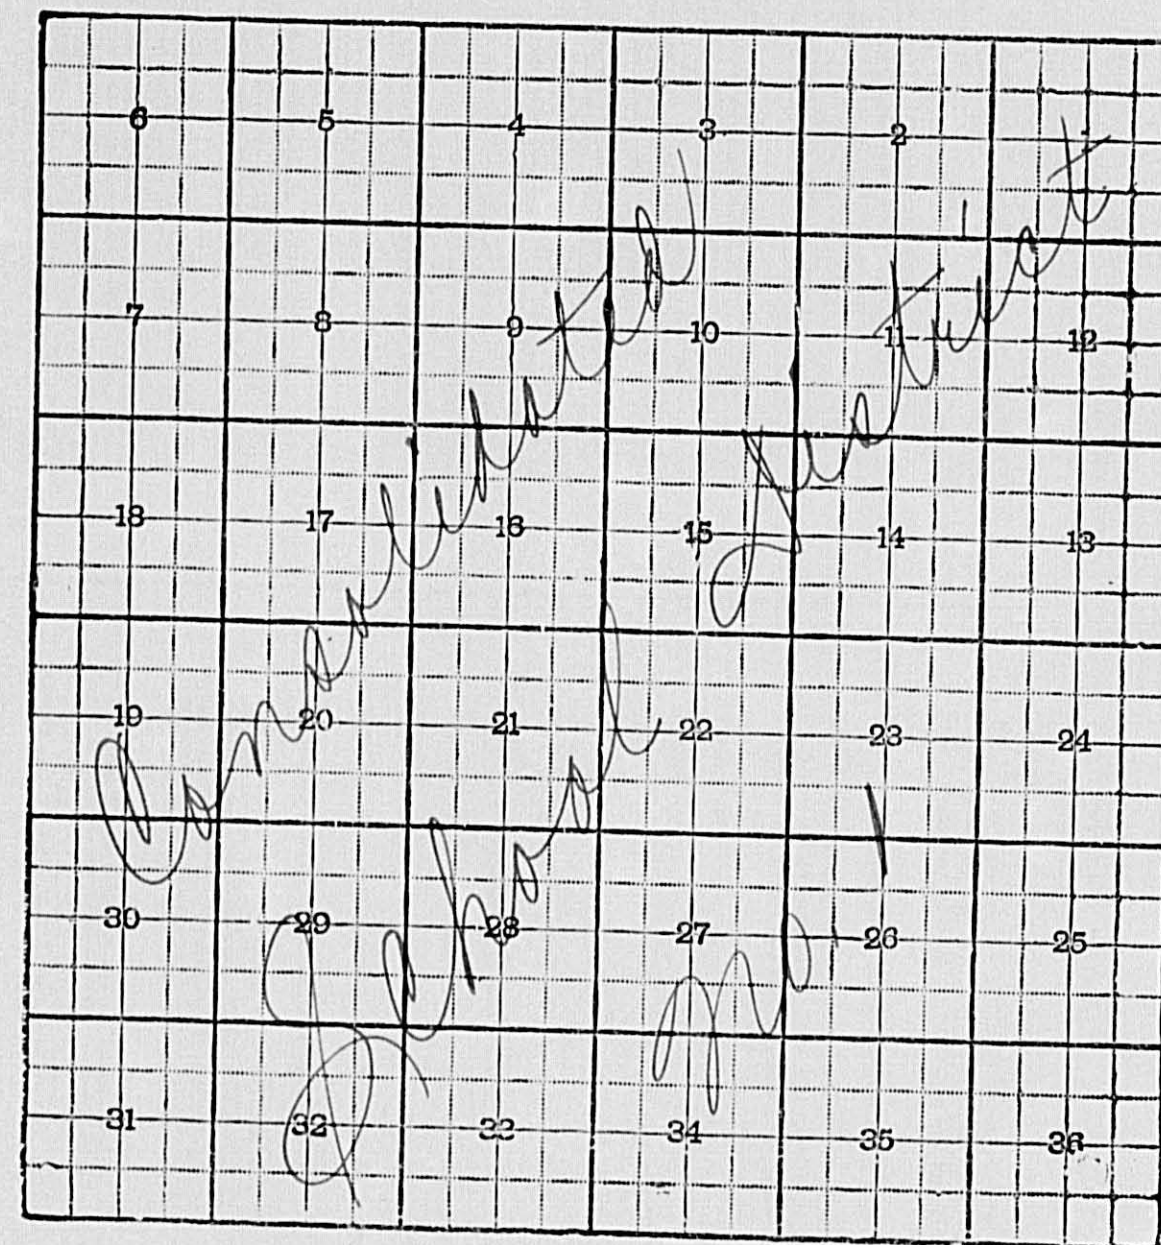 6 5 4 3 2
7 8 9 10 11 12
18 17 16 15 14 13
19 20 21 22 23 24
30 29 28 27 26 25
31 32 33 34 35 36
Consolidated
School District
No. 1